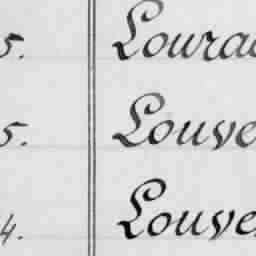 5. Lourac
5. Louve
4. Louve